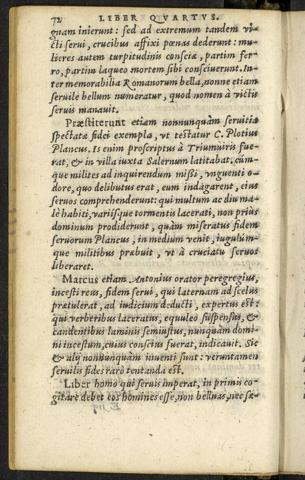 72 LIBER QVARTVS.
gnam inierunt: sed ad extremum tandem vi-
cti serui, crucibus affixi pœnas dederunt: mu-
lieres autem turpitudinis consciæ, partim fer-
ro, partim laqueo mortem sibi consciuerunt. In-
ter memorabilia Romanorum bella, nonne etiam
seruile bellum numeratur, quod nomen à victis
seruis manauit.
Præstiterunt etiam nonnunquàm seruitia
spectatæ fidei exempla, vt testatur C. Plotius
Plancus. Is enim proscriptus à Triumuiris fue-
rat, & in villa iuxta Salernum latitabat, cùm-
que milites ad inquirendum missi, vnguenti o-
dore, quo delibutus erat, eum indagarent, eius
seruos comprehenderunt: qui multum ac diu ma-
lè habiti, variisque tormentis lacerati, non prius
dominum prodiderunt, quàm miseratus fidem
seruorum Plancus, in medium venit, iugulúm-
que militibus præbuit, vt à cruciatu seruos
liberaret.
Marcus etiam, Antonius orator peregregius,
incesti reus, fidem serui, qui laternam ad scelus
prætulerat, ad iudicium deducti, expertus est:
qui verberibus laceratus, equuleo suspensus, &
candentibus laminis semiustus, nunquàm domi-
ni incestum, cuius conscius fuerat, indicauit. Sic
& alij nonnunquàm inuenti sunt: veruntamen
seruilis fides rarò tentanda est.
Liber homo qui seruis imperat, in primis co-
gitare debet eos homines esse, non belluas, nec sæ-